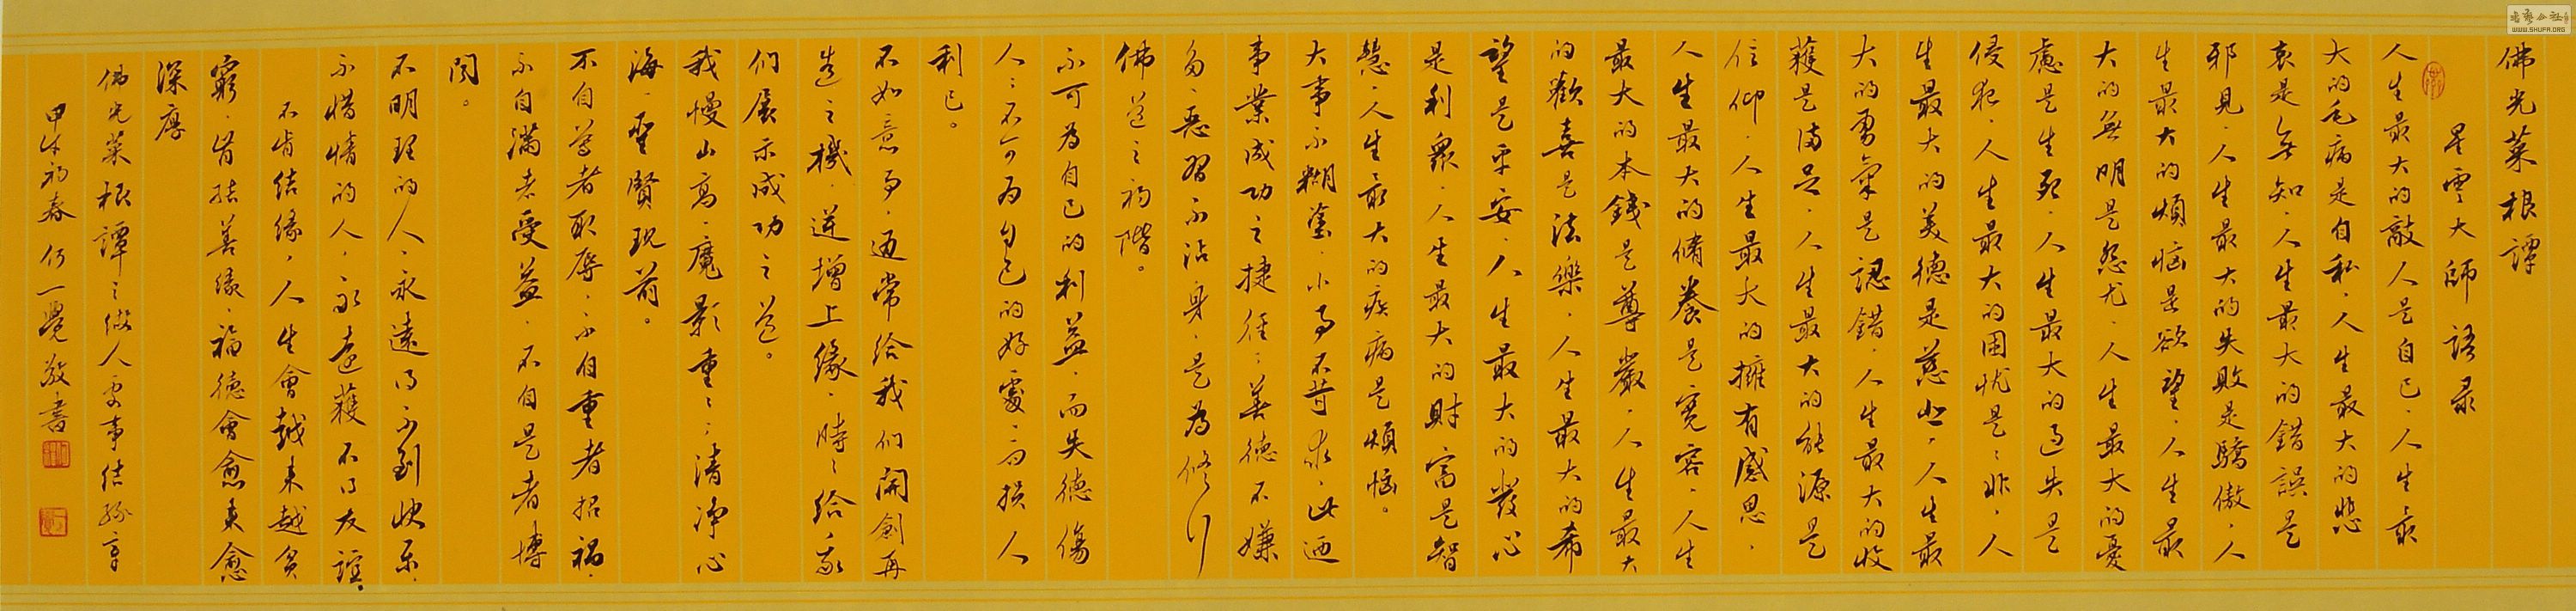 佛光菜根譚
星雲大師語录
人生最大的敵人是自己．人生最
大的毛病是自私．人生最大的悲
哀是无知．人生最大的錯誤是
邪見．人生最大的失敗是驕傲．人
生最大的煩惱是欲望．人生最
大的無明是怨尤．人生最大的憂
慮是生死．人生最大的过失是
侵犯．人生最大的困忧是是非．人
生最大的美德是慈悲．人生最
大的勇氣是認錯．人生最大的收
穫是滿足．人生最大的能源是
信仰．人生最大的擁有感恩．
人生最大的脩養是寬容．人生
最大的本錢是尊嚴．人生最大
的歡喜是法樂．人生最大的希
望是平安．人生最大的發心
是利眾．人生最大的財富是智
慧．人生最大的疾病是煩惱。
大事不糊塗．小事不苛求．此迺
事業成功之捷徑；善德不嫌
多．惡習不沾身．是為修行
佛道之初階。
不可為自己的利益．而失德傷
人；不可为自己的好處．而损人
利己。
不如意事．通常给我们開創再
造之機．逆增上缘．時時给我
们展示成功之道。
我慢山高．魔影重重；清净心
海．聖賢現前。
不自尊者取辱．不自重者招禍．
不自滿者受益．不自是者博
闻。
不明理的人．永遠得不到快乐．
不惜情的人．永遠穫不得友誼．
不肯结缘．人生會越来越贫
窮．肯结善缘．福德會愈来愈
深厚
佛光菜根譚之做人處事结缘章
甲午初春 仍一覺敬書
WWW.SHUFA.ORG